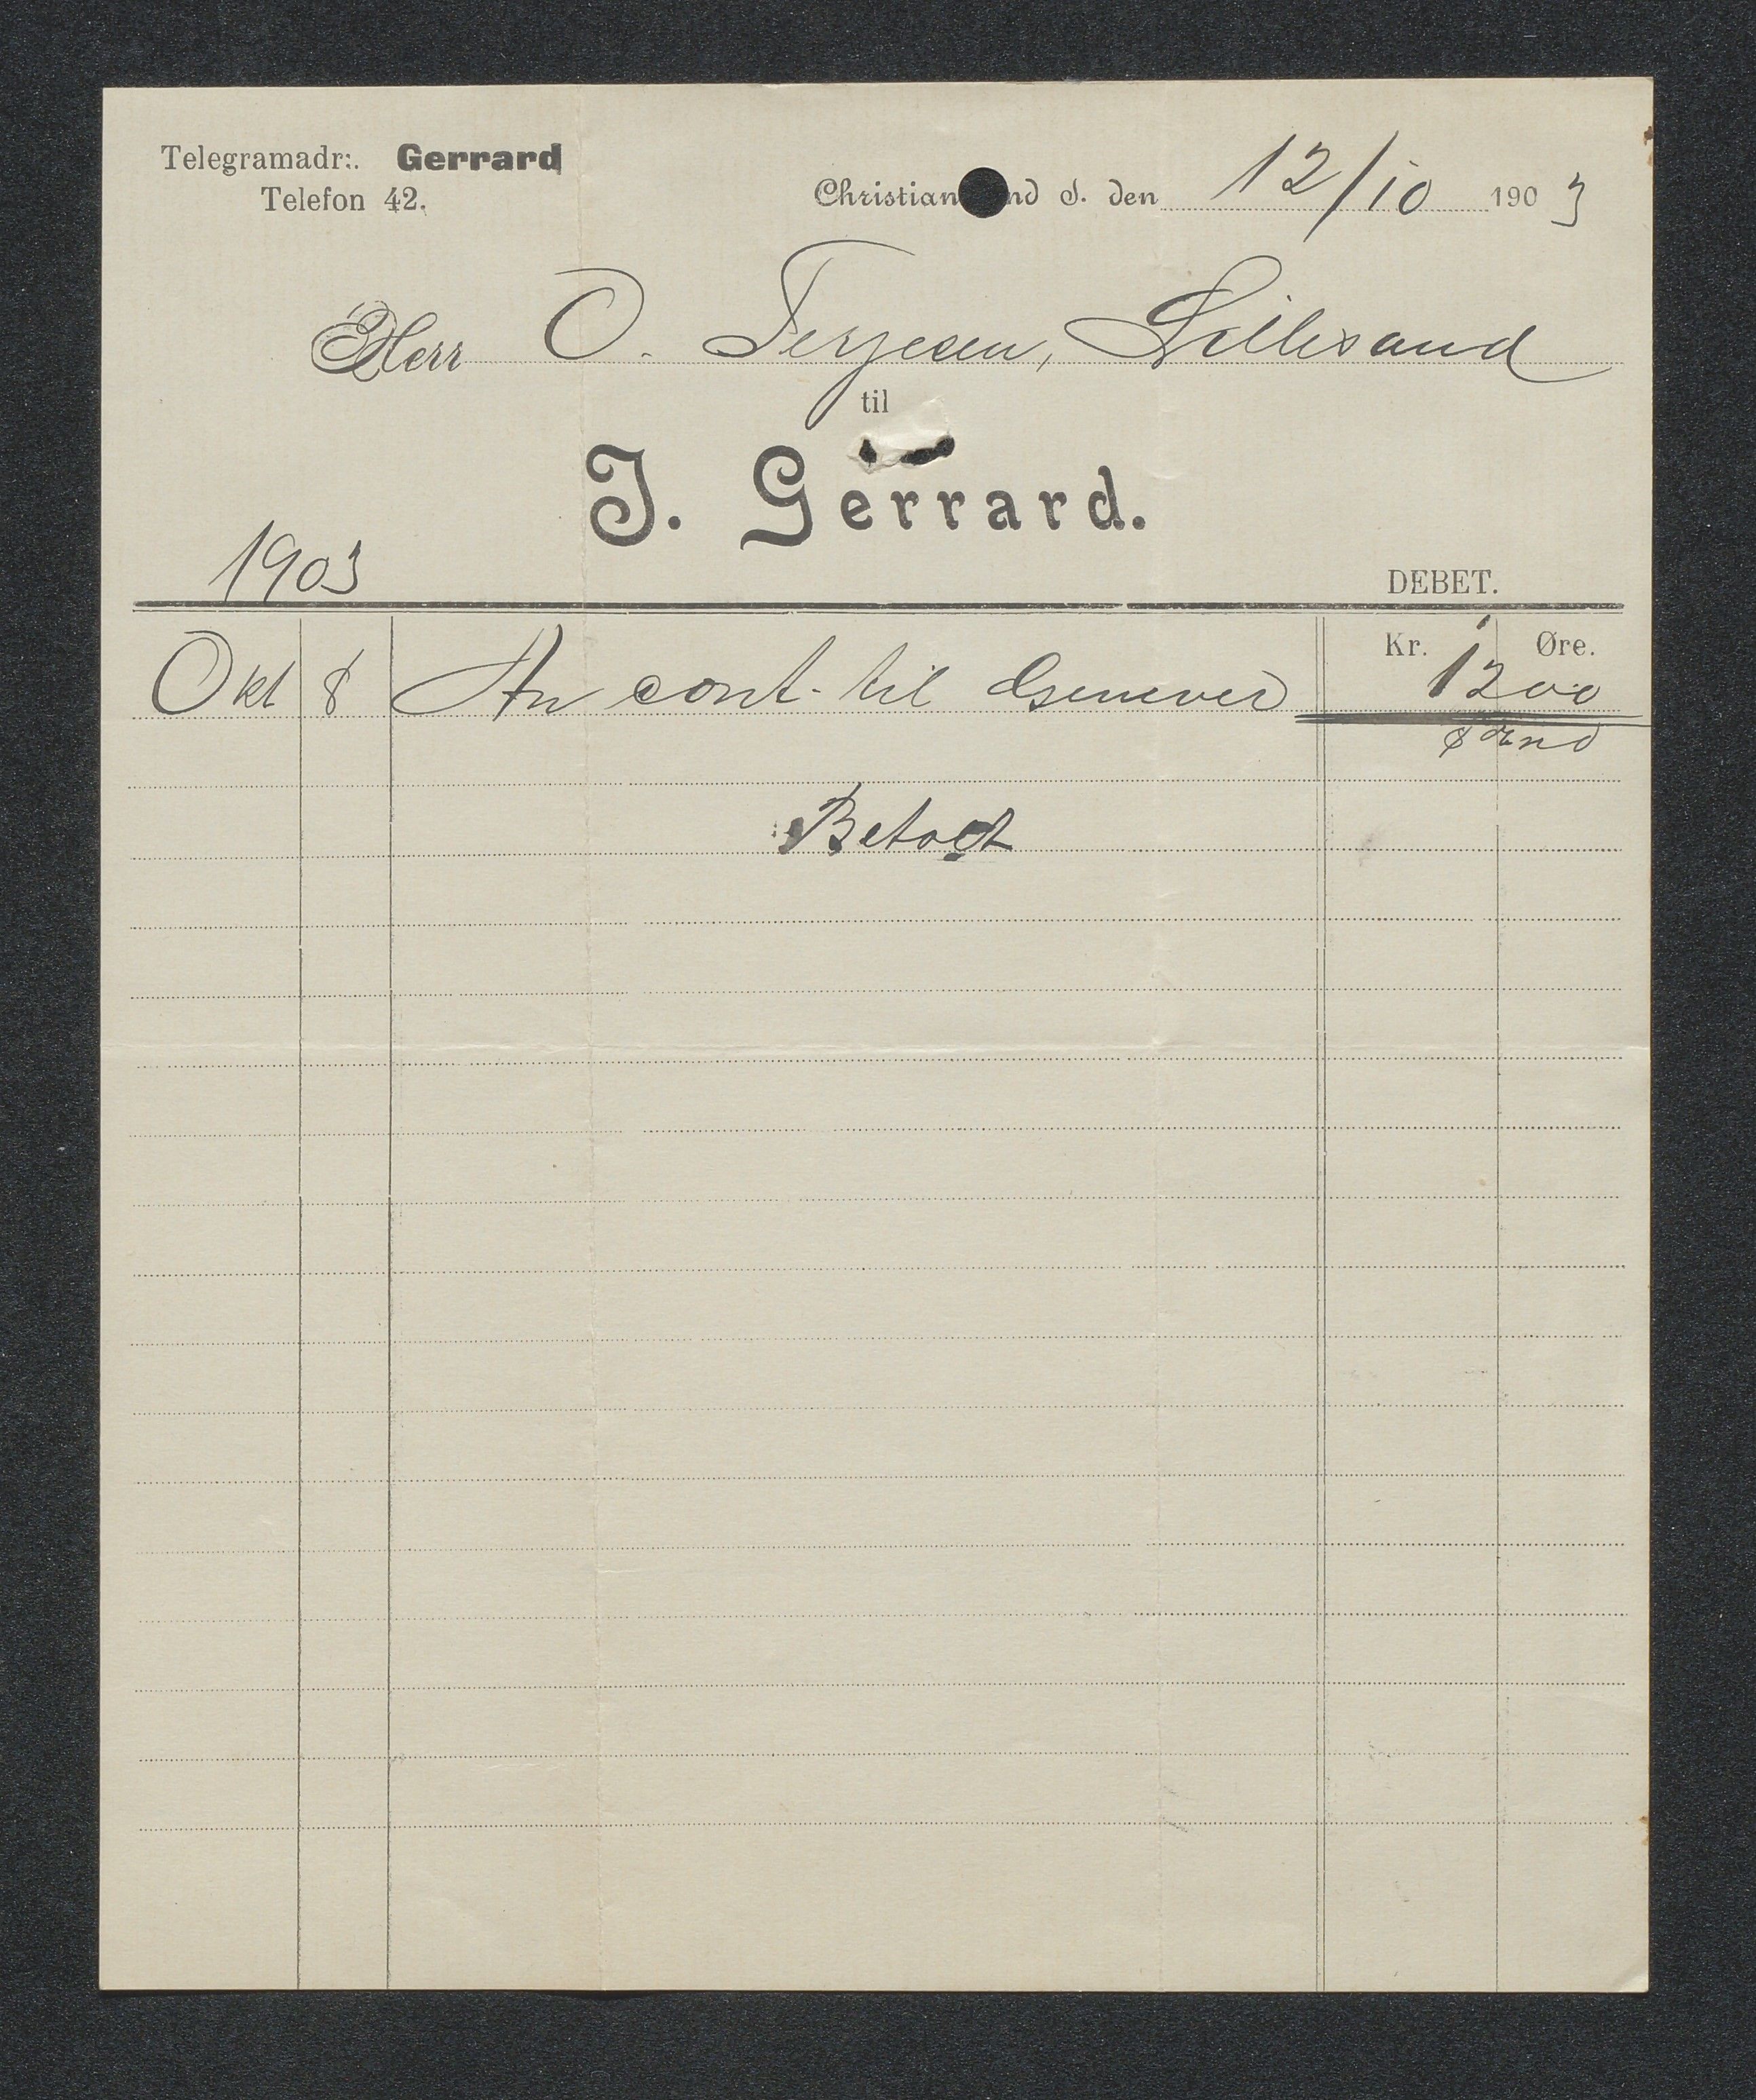 Telegramadr:. Gerrard
Telefon 42.
Christian nd S. den 12/10 1903
Herr O. Terjesen, Lillesand
til
J. Gerrard.
1903
DEBET.
Kr. Øre.
Okt 8 An cont. til 1200
Betalt